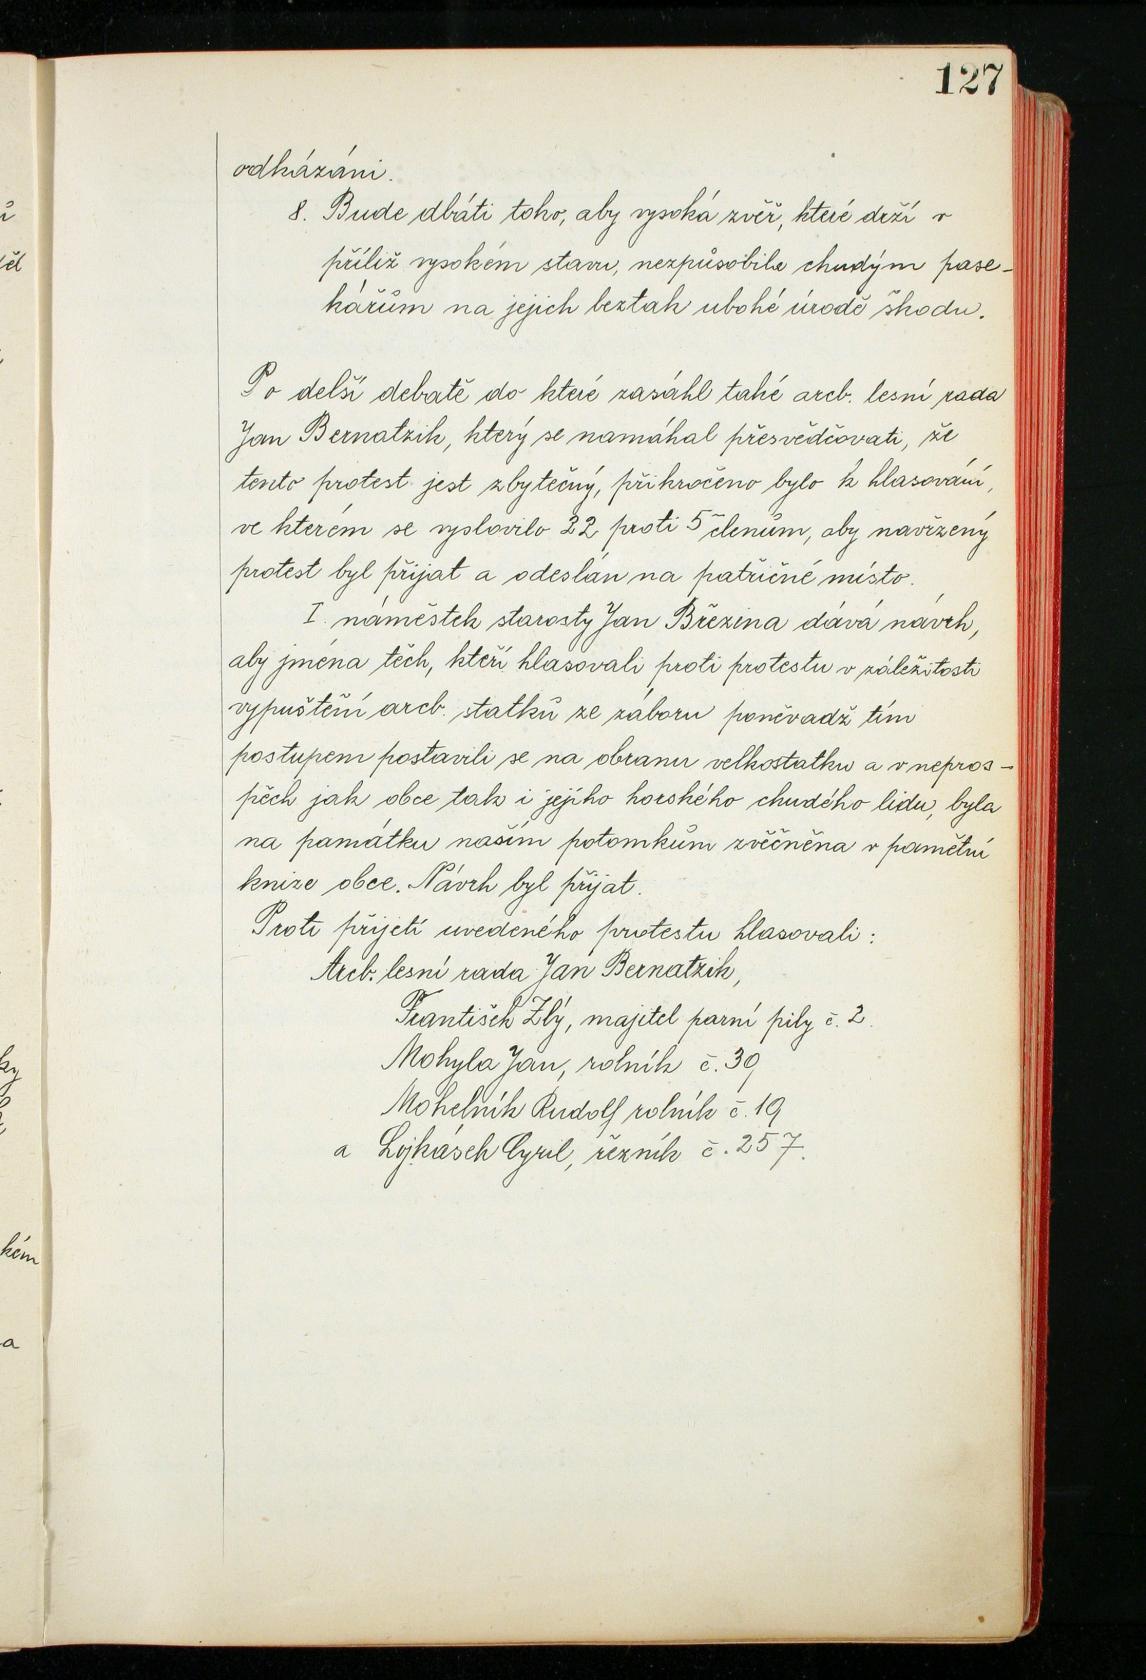 127
odkázáni.
8. Bude dbáti toho, aby vysoká zvěř, které drží v
příliž vysokém stavu, nezpůsobila chudým pase-
kářům na jejich beztak ubohé úrodě škodu.
Po delší debatě do které zasáhl také arcb. lesní rada
Jan Bernatzik, který se namáhal přesvědčovati, že
tento protest jest zbytečný, přikročeno bylo k hlasování,
ve kterém se vyslovilo 22 proti 5 členům, aby navržený
protest byl přijat a odeslán na patřičné místo.
I. náměstek starosty Jan Březina dává návrh,
aby jména těch, kteří hlasovali proti protestu v záležitosti
vypuštění arcb. statků ze záboru poněvadž tím
postupem postavili se na obranu velkostatku a v nepros-
pěch jak obce tak i jejího horského chudého lidu, byla
na památku naším potomkům zvěčněna v pamětní
knize obce. Návrh byl přijat.
Proti přijetí uvedeného protestu hlasovali:
Arcb. lesní rada Jan Bernatzik,
František Zlý, majitel parní pily č. 2.
Mohyla Jan, rolník č. 39
Mohelník Rudolf rolník č. 19
a Lojkásek Cyril, řezník č. 257.